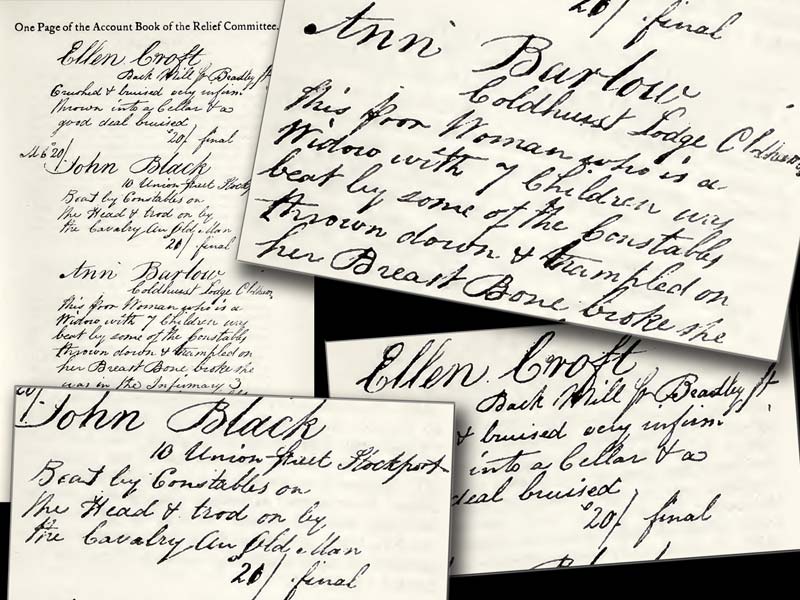 One Page of the Account Book of the Relief Committee.
Ellen Croft
Back Mill St Bradley ft
Crushed & bruised very infirm
thrown into a Cellar & a
good deal bruised
20/ final
20/
John Black
10 Union Street Stockp
Beat by Constables on
the Head & trod on by
the Cavalry An Old Man
20/ final
Ann Barlow
Coldhurst Lodge Oldham
This poor Woman who is a
Widow with 7 Children was
beat by some of the Constables
thrown down & trampled on
her Breast Bone broke she
was in the Infirmary 3
20/ final
Ann Barlow
Coldhurst Lodge Oldham
This poor Woman who is a
Widow with 7 Children was
beat by some of the Constables
thrown down & trampled on
her Breast Bone broke she
John Black
10 Union Street Stockport
Beat by Constables on
the Head & trod on by
the Cavalry An Old Man
20/ final
Ellen Croft
Back Mill St Bradley ft
& bruised very infirm
into a Cellar & a
deal bruised
20/ final